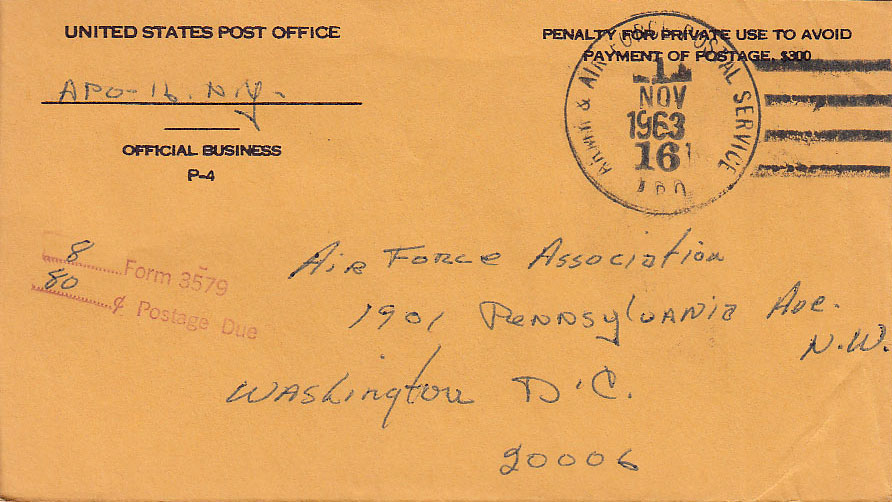 UNITED STATES POST OFFICE
APO-16. N.Y.
OFFICIAL BUSINESS
P-4
PENALTY FOR PRIVATE USE TO AVOID
PAYMENT OF POSTAGE, $300
ARMY & AIR FORCE POSTAL SERVICE
1
NOV
1963
16
APO
8 Form 3579
80 ¢ Postage Due
Air Force Association
1901 Pennsylvania Ave.
N.W.
Washington D.C.
20006